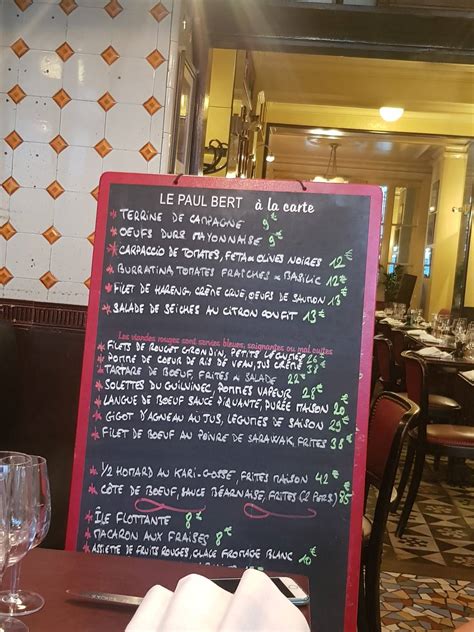 LE PAUL BERT à la carte
TERRINE DE CAMPAGNE 9€
OEUFS DURS MAYONNAISE 9€
CARPACCIO DE TOMATES, FETA & OLIVES NOIRES 12€
BURRATINA, TOMATES FRAICHES & BASILIC 12€
FILET DE HARENG, CRÈME CRUE, OEUFS DE SAUMON 13€
SALADE DE SEICHES AU CITRON CONFIT 13€
Les viandes rouges sont servies bleues, saignantes ou mal cuites
FILETS DE ROUGET GRONDIN, PETITS LÉGUMES 26€
POMME DE COEUR DE RIS DE VEAU, JUS CRÈMÉ
TARTARE DE BOEUF, FRITES & SALADE 22€
SOLETTES DU GUILVINEC, POMMES VAPEUR 28€
LANGUE DE BOEUF SAUCE PIQUANTE, PURÉE MAISON 20€
GIGOT D'AGNEAU AU JUS, LÉGUMES DE SAISON 29€
FILET DE BOEUF AU POIVRE DE SARAWAK, FRITES 38€
1/2 HOMARD AU KARI-GOSSE, FRITES MAISON 42€
CÔTE DE BOEUF, SAUCE BÉARNAISE, FRITES (2 PERS.) 85€
ÎLE FLOTTANTE 8€
MACARON AUX FRAISES
ASSIETTE DE FRUITS ROUGES, GLACE FROMAGE BLANC 10€